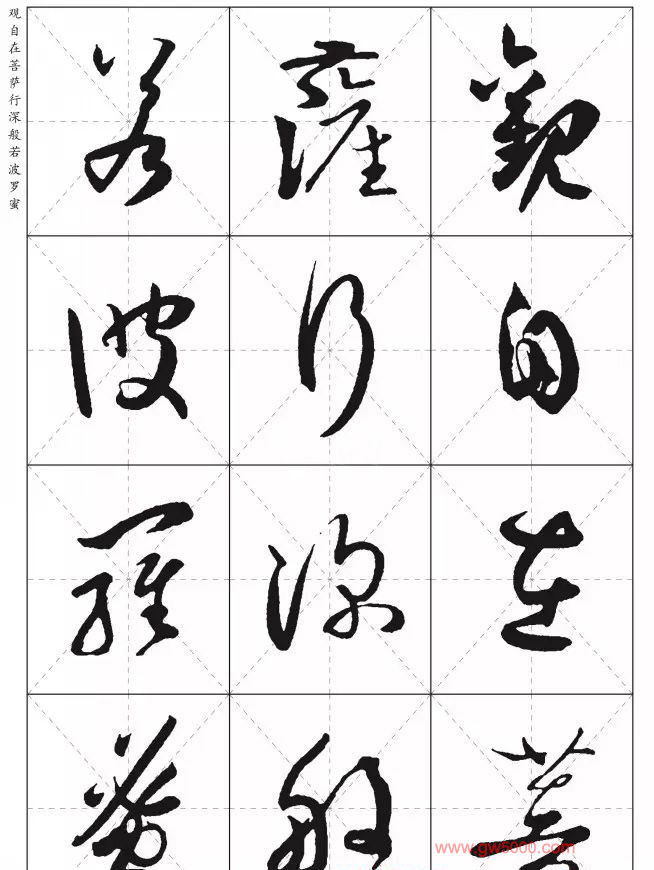 观自在菩萨行深般若波罗蜜
觀自在菩
薩行深般
若波羅蜜
www.gw5000.com